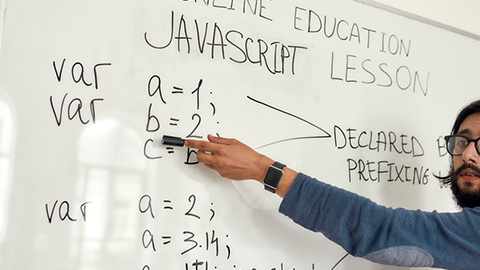 ONLINE EDUCATION
JAVASCRIPT LESSON
var a = 1;
var b = 2;
c = b
DECLARED
PREFIXING
var a = 2;
a = 3.14;
a =